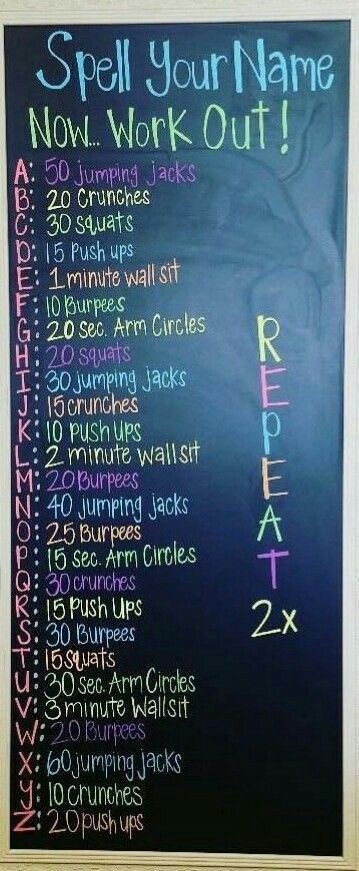 Spell Your Name
Now... Work Out!
A: 50 jumping jacks
B: 20 Crunches
C: 30 squats
D: 15 Push ups
E: 1 minute wall sit
F: 10 Burpees
G: 20 sec. Arm Circles
H: 20 squats
I: 30 jumping jacks
J: 15 crunches
K: 10 push ups
L: 2 minute wall sit
M: 20 Burpees
N: 40 jumping jacks
O: 25 Burpees
P: 15 sec. Arm Circles
Q: 30 crunches
R: 15 Push Ups
S: 30 Burpees
T: 15 squats
U: 30 sec. Arm Circles
V: 3 minute Wall sit
W: 20 Burpees
X: 60 jumping jacks
y: 10 crunches
Z: 20 push ups
REPEAT
2x